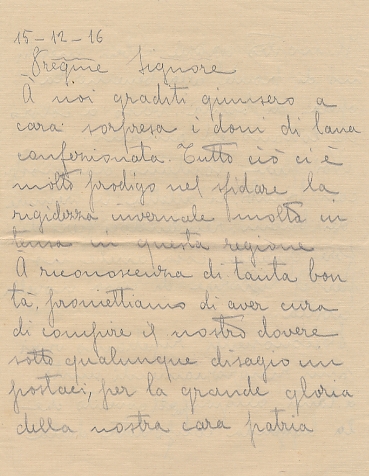 15-12-16
Pregme Signore
A noi graditi giunsero a
cara sorpresa i doni di lana
confezionata. Tutto ciò ci è
molto prodigo nel sfidare la
rigidezza invernale molta in
tensa in questa regione
A riconoscenza di tanta bon
tà, promettiamo di aver cura
di compire il nostro dovere
sotto qualunque disagio im
postaci, per la grande gloria
della nostra cara patria